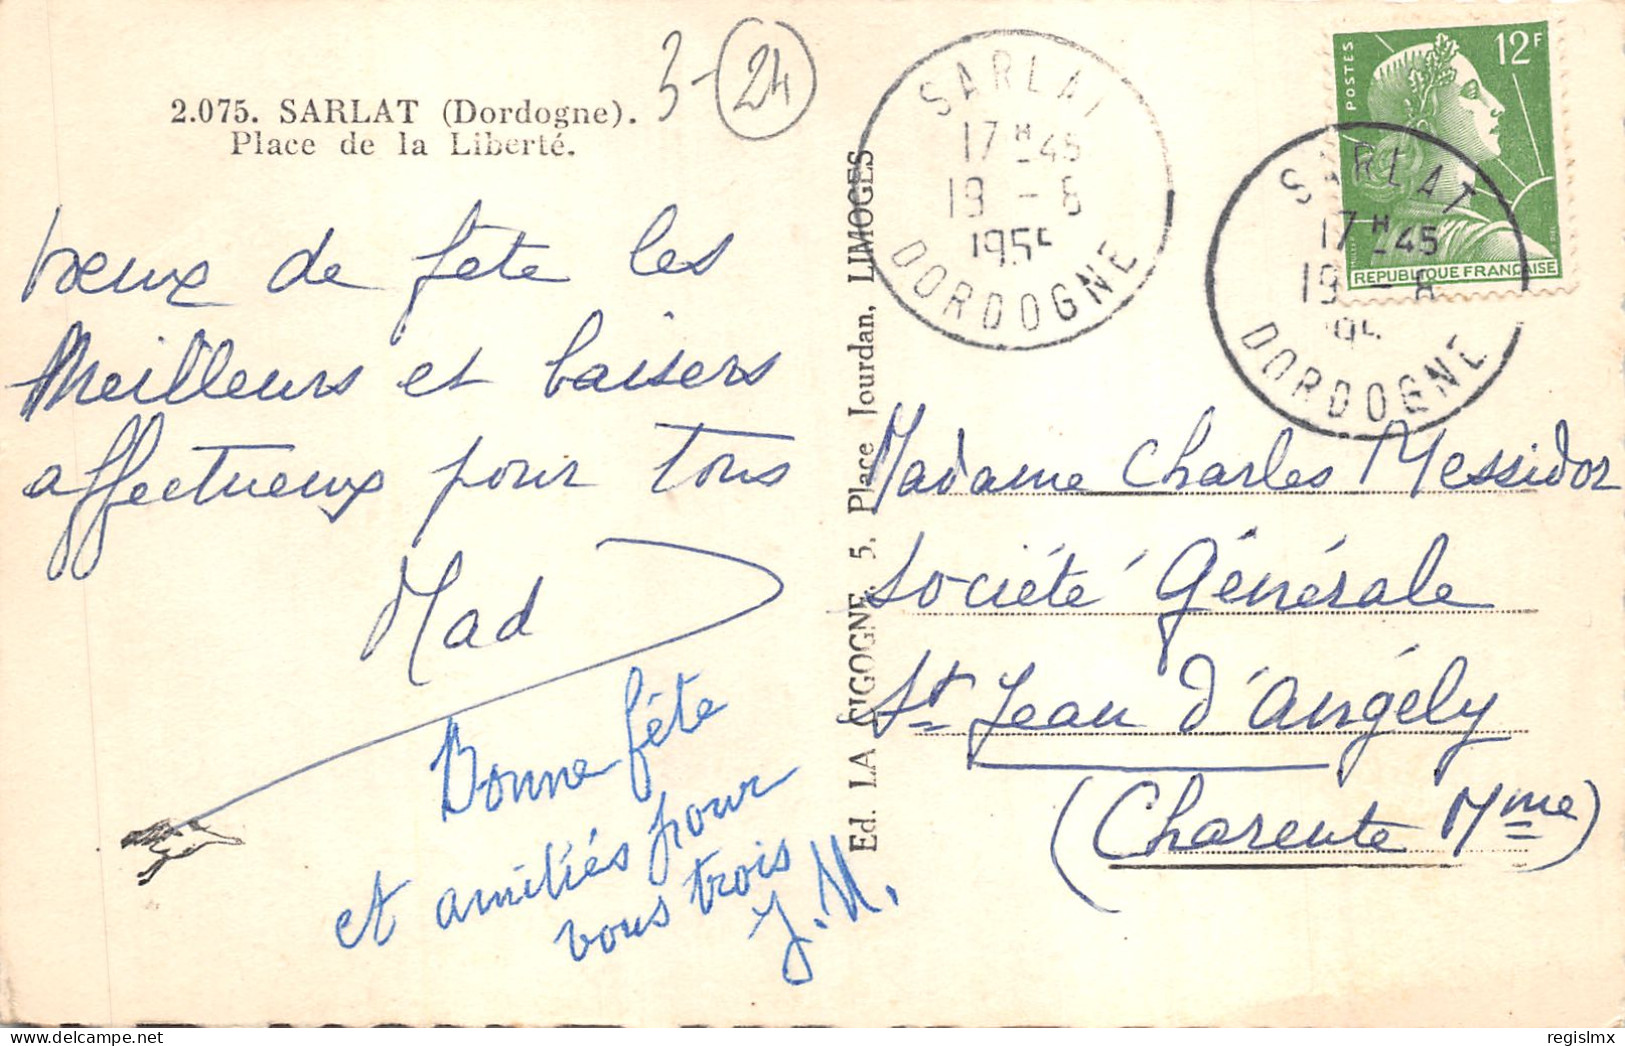 2.075. SARLAT (Dordogne).
Place de la Liberté.
3-24
Vœux de fête les
Meilleurs et baisers
affectueux pour tous
Mad
Bonne fête
et amitiés pour
vous trois
J.M.
Ed. LA CIGOGNE, 5, Place Jourdan, LIMOGES
SARLAT
17 H -45
19 - 8
195
DORDOGNE
POSTES
12F
REPUBLIQUE FRANÇAISE
SARLAT
17 H -45
19 - 8
DORDOGNE
Madame Charles Messidor
Société Générale
St Jean d'Angély
(Charente Mme)
regislmx